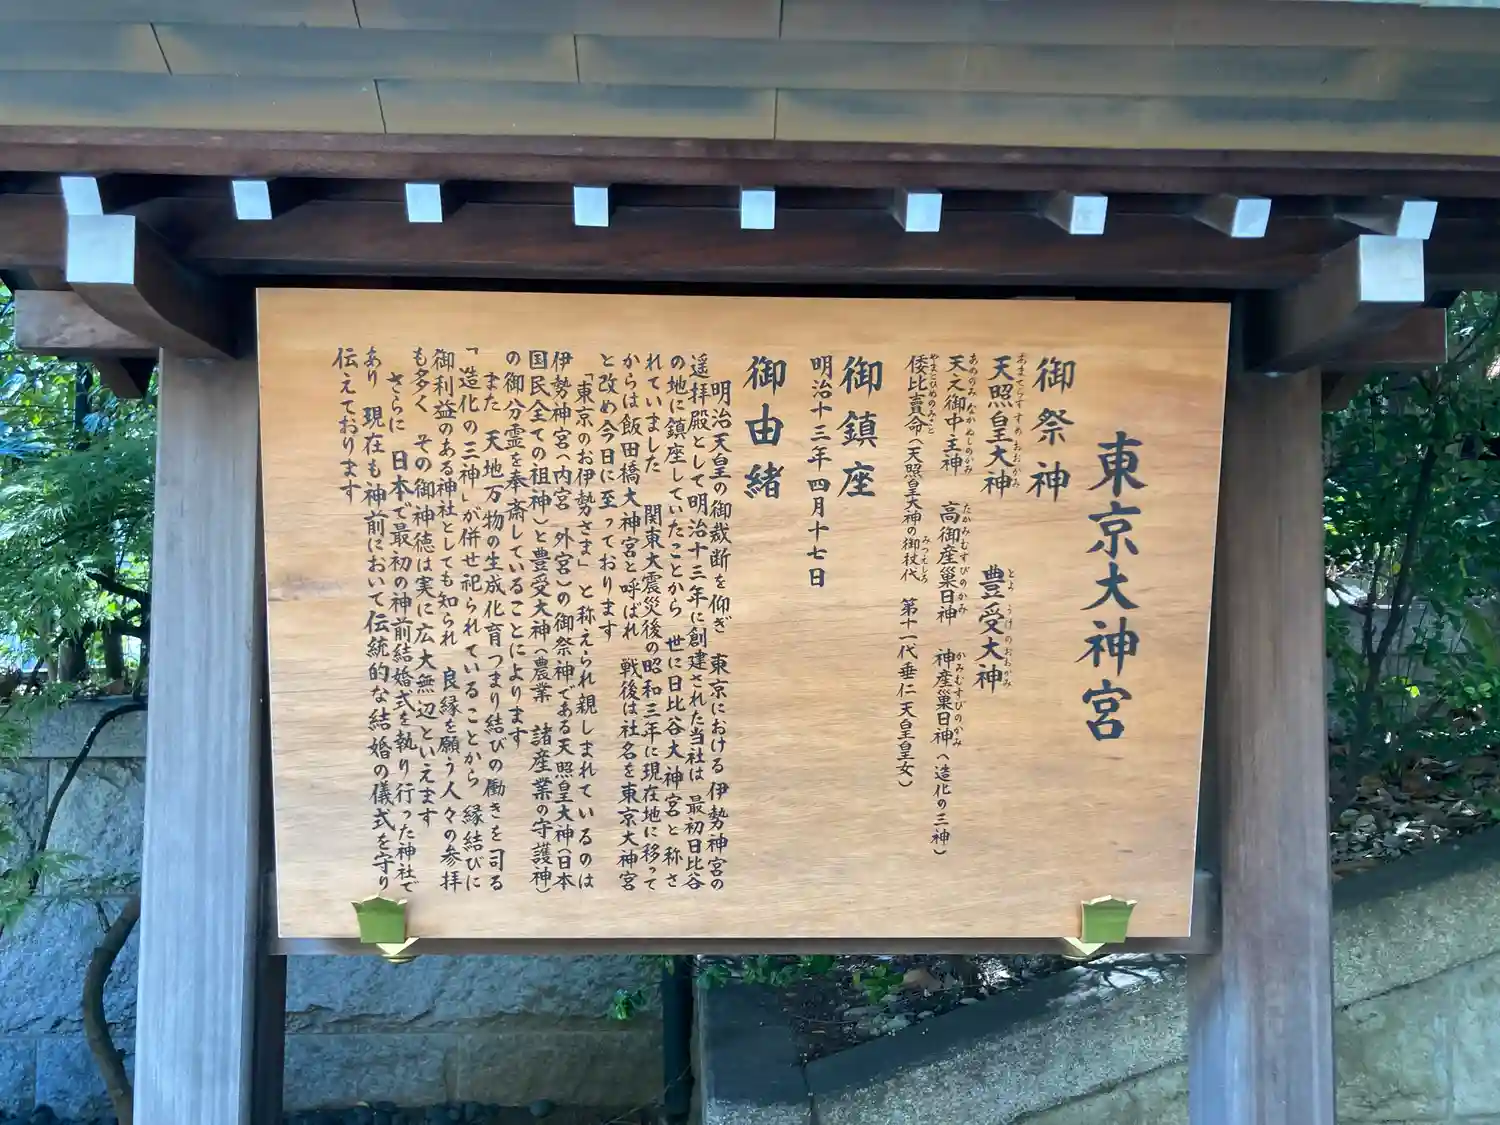 東京大神宮
御祭神
天照皇大神 豊受大神
あまてらすすめおおかみ とようけのおおかみ
天之御中主神 高御産巣日神 神産巣日神(造化の三神)
あめのみなかぬしのかみ たかみむすびのかみ かみむすびのかみ
倭比賣命(天照皇大神の御杖代 第十一代垂仁天皇皇女)
やまとひめのみこと みつえしろ
御鎮座
明治十三年四月十七日
御由緒
明治天皇の御裁断を仰ぎ 東京における伊勢神宮の
遥拝殿として明治十三年に創建された当社は 最初日比谷
の地に鎮座していたことから 世に日比谷大神宮と称さ
れていました 関東大震災後の昭和三年に現在地に移って
からは飯田橋大神宮と呼ばれ 戦後は社名を東京大神宮
と改め今日に至っております
「東京のお伊勢さま」と称えられ親しまれているのは
伊勢神宮(内宮 外宮)の御祭神である天照皇大神(日本
国民全ての祖神)と豊受大神(農業 諸産業の守護神)
の御分霊を奉斎していることによります
また 天地万物の生成化育つまり結びの働きを司る
「造化の三神」が併せ祀られていることから 縁結びに
御利益のある神社としても知られ 良縁を願う人々の参拝
も多く その御神徳は実に広大無辺といえます
さらに 日本で最初の神前結婚式を執り行った神社で
あり 現在も神前において伝統的な結婚の儀式を守り
伝えております